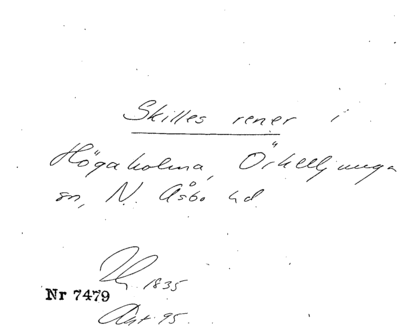 Skilles rener i
Högaholma, Örkelljunga
sn, N. Åsbo hd
1835
Nr 7479
Akt 95.